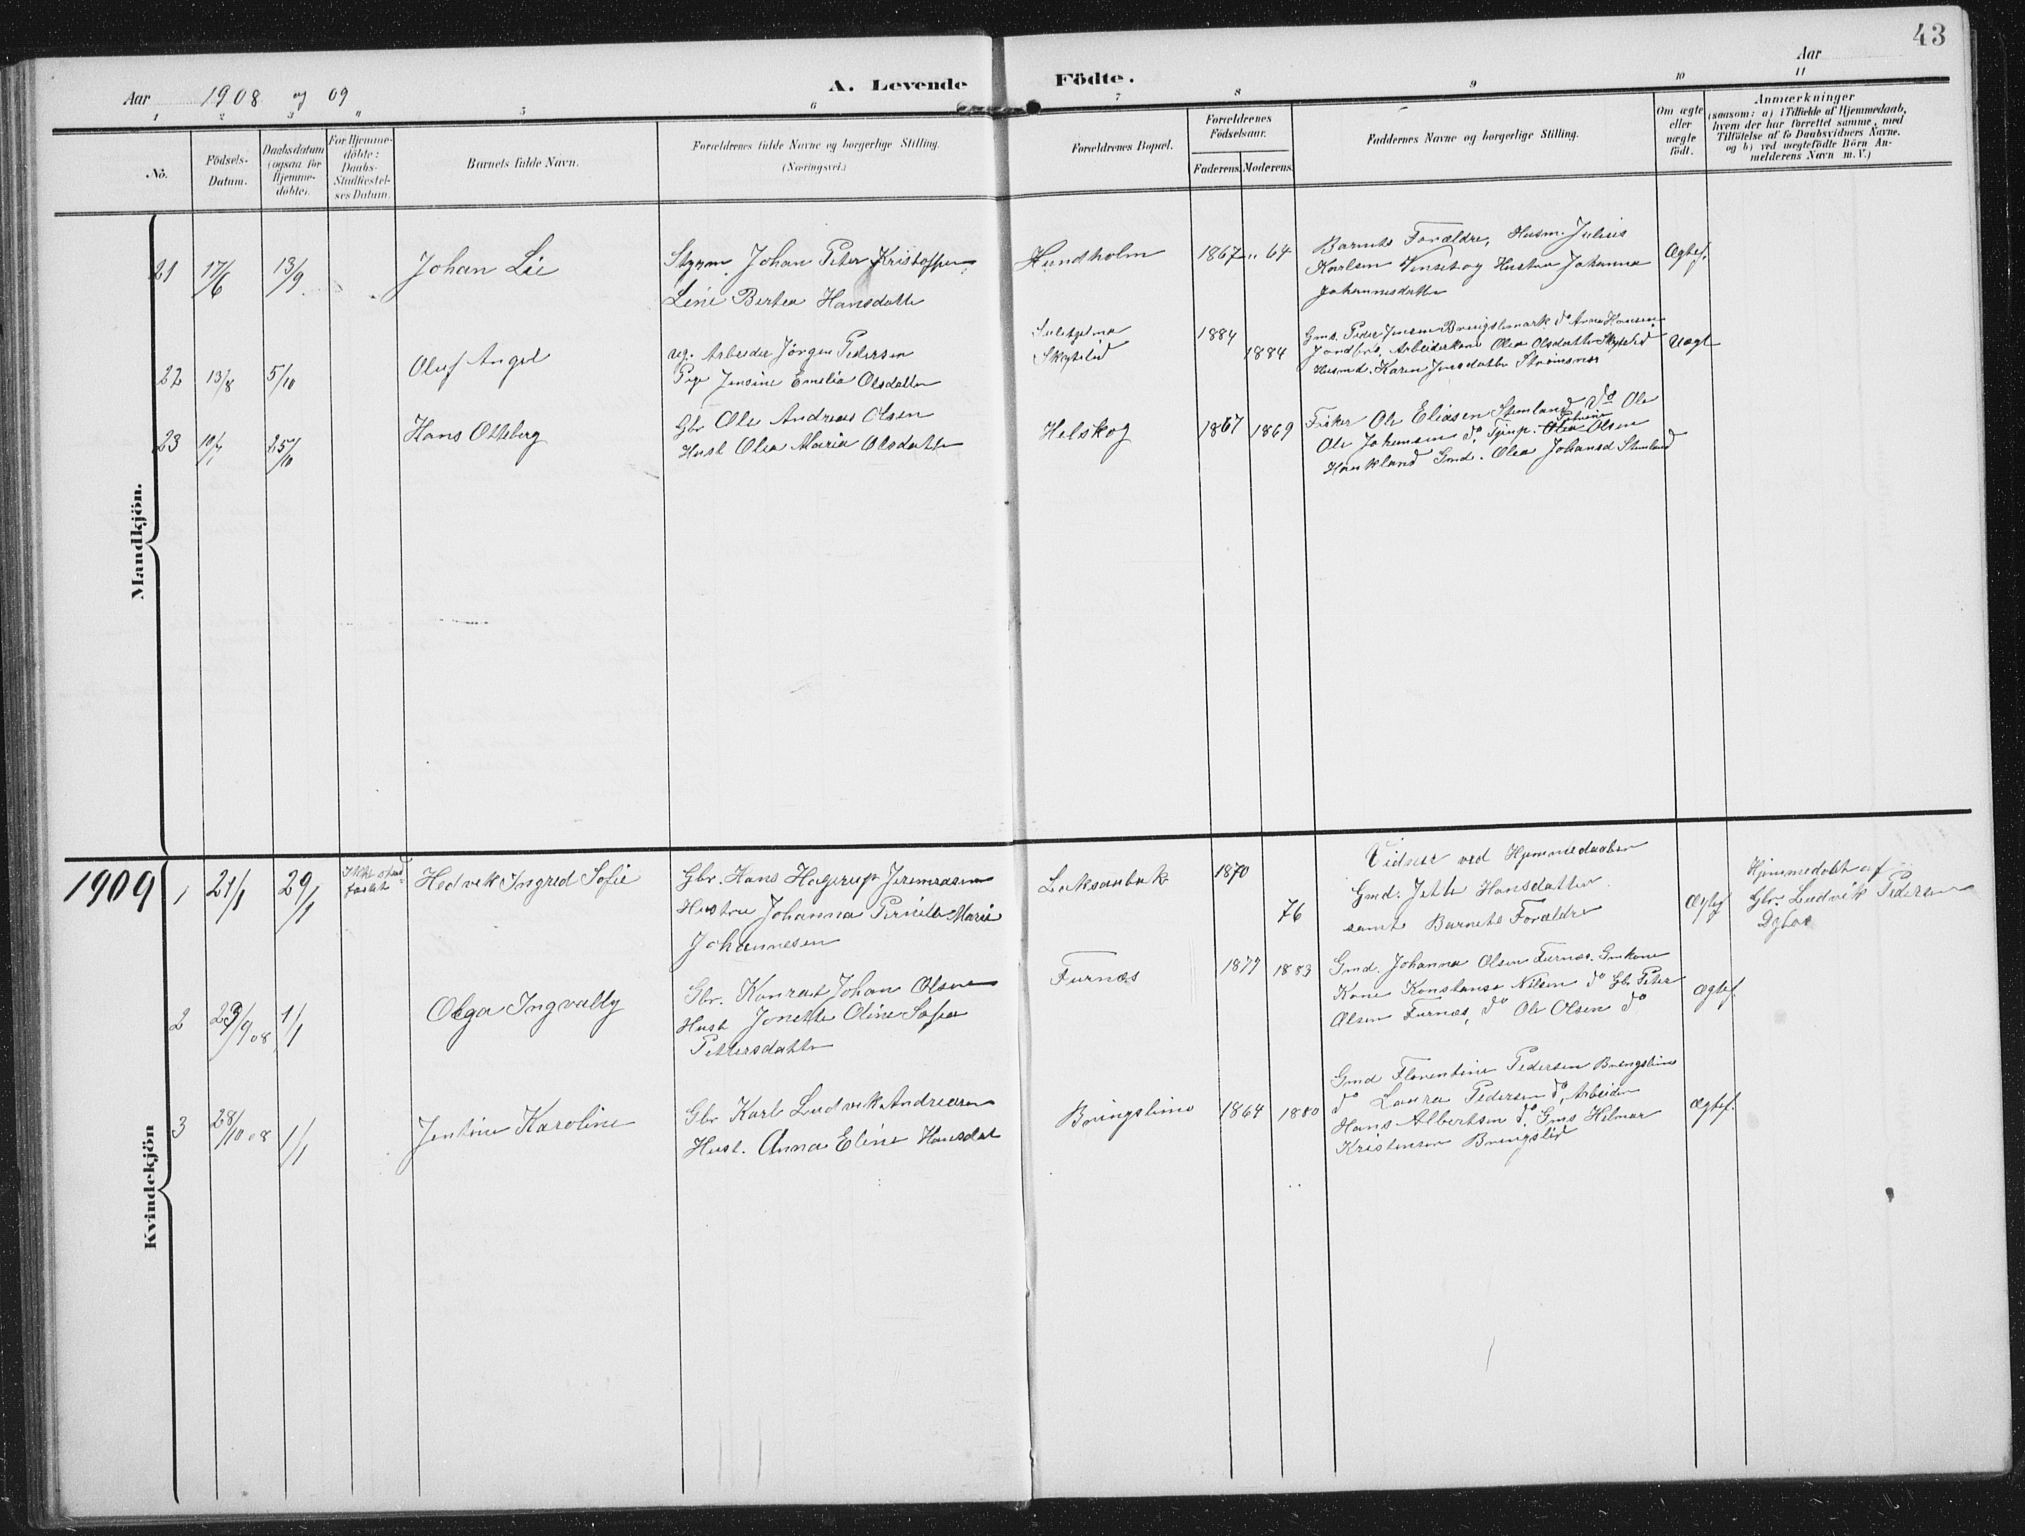 43
Aar 1908 og 09
A. Levende Födte.
Aar
1 2 3 4 5 6 7 8 9 10 11
No.
Födsels-
Datum.
Daabsdatum
(ogsaa for
Hjemme-
döbte).
For Hjemme-
döbte:
Daabs-
Stadfæstel-
ses Datum.
Barnets fulde Navn.
Forældrenes fulde Navne og borgerlige Stilling.
(Næringsvei.)
Forældrenes Bopæl.
Forældrenes
Födselsaar.
Faderens. Moderens.
Faddernes Navne og borgerlige Stilling.
Om ægte
eller
uægte
födt.
Anmærkninger
(saasom: a) i Tilfælde af Hjemmedaab,
hvem der har forrettet samme, med
Tilföielse af to Daabsvidners Navne,
og b) ved uægtefödte Börn An-
melderens Navn m. V.)
Mandkjön.
21 17/6 13/9 Johan Lie
Johan Peter Kristoffersen
Line Bertea Hansdatter
Hundholm 1867 64
Barnets Forældre, Husm. Julius
Karlsen og Hustru Johanna
Johannesdatter
Ægtef.
22 13/8 5/10 Oluf Angel
ug. Arbeider Jörgen Pedersen
Pige Jensine Emelia Olsdatter
Sulitjelma
Skyteslid
1884
1884
Gms. Peder Jensen
Arbeiderkone Olea Olsdatter
Husmd. Karen Jensdatter Strömsnes
Uægt
23 25/10 Hans Otteberg
Gbr Ole Andreas Olsen
Hust Olea Maria Olsdatter
Helskog 1867 1869
Fisker Ole Eliasen do Ole
Ole Johansen do
Olsen
Haukland Gmd. Olea
Kvindekjön
1909
1 21/1 29/1 Ikke stad
fæstet
Hedvik Ingred Sofie
Gbr. Hans Hagerup Jeremiasen
Hustru Johanna Pernille Marie
Johannesen
Laksaabak 1870
76
Vidner ved Hjemmedaaben
Gmd. Jette Hansdatter
samt Barnets Forældre
Ægtef
Hjemmedöbt af
Gbr. Ludvik Pedersen
2 23/9 08 1/1 Olga Ingvally
Gbr. Konrad Johan Olsen
Hust Jonette Oline Sofie
Pettersdatter
Furnæs 1877 1883
Gmd. Johanna Olsen Furnæs.
Kone Konstanse Nilsen do Gb Peter
Olsen Furnæs, do Ole Olsen do
Ægtef.
3 28/10 08 1/1 Jentine Karoline
Gbr Karl Ludvik Andreasen
Hust. Anna Eline Hansdat
Bringslimo 1864 1880
Gmd Florentine Pedersen Bringslimo
do Laura Pedersen do, Arbeider
Hans Albertsen do. Gms Hilmar
Kristensen Bringslid
Ægtef.